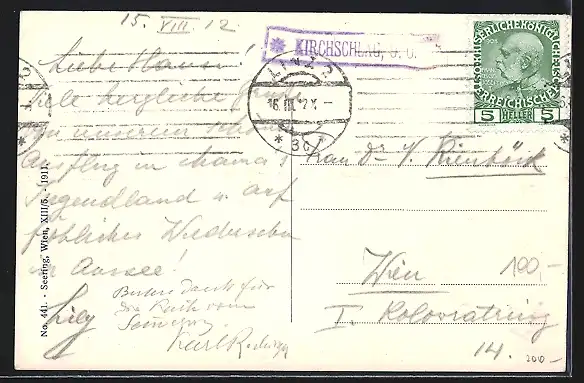 15. VIII. 12.
✻ KIRCHSCHLAG, O. Ö.
LINZ 2
16. VIII. 12 X
Liebe Hansi!
Viele herzliche Grüße
von unserem schönen
Ausflug in
Jugendland u. auf
fröhliches Wiedersehn
in Aussee!
Lily
Besten Dank für
die Karte vom
Karl
Frau Dr. V. Kienböck
Wien
I. Kolowratring
14.
100,-
200,-
5 HELLER 5
No. 441. - Seering, Wien, XIII/5. - 1911.